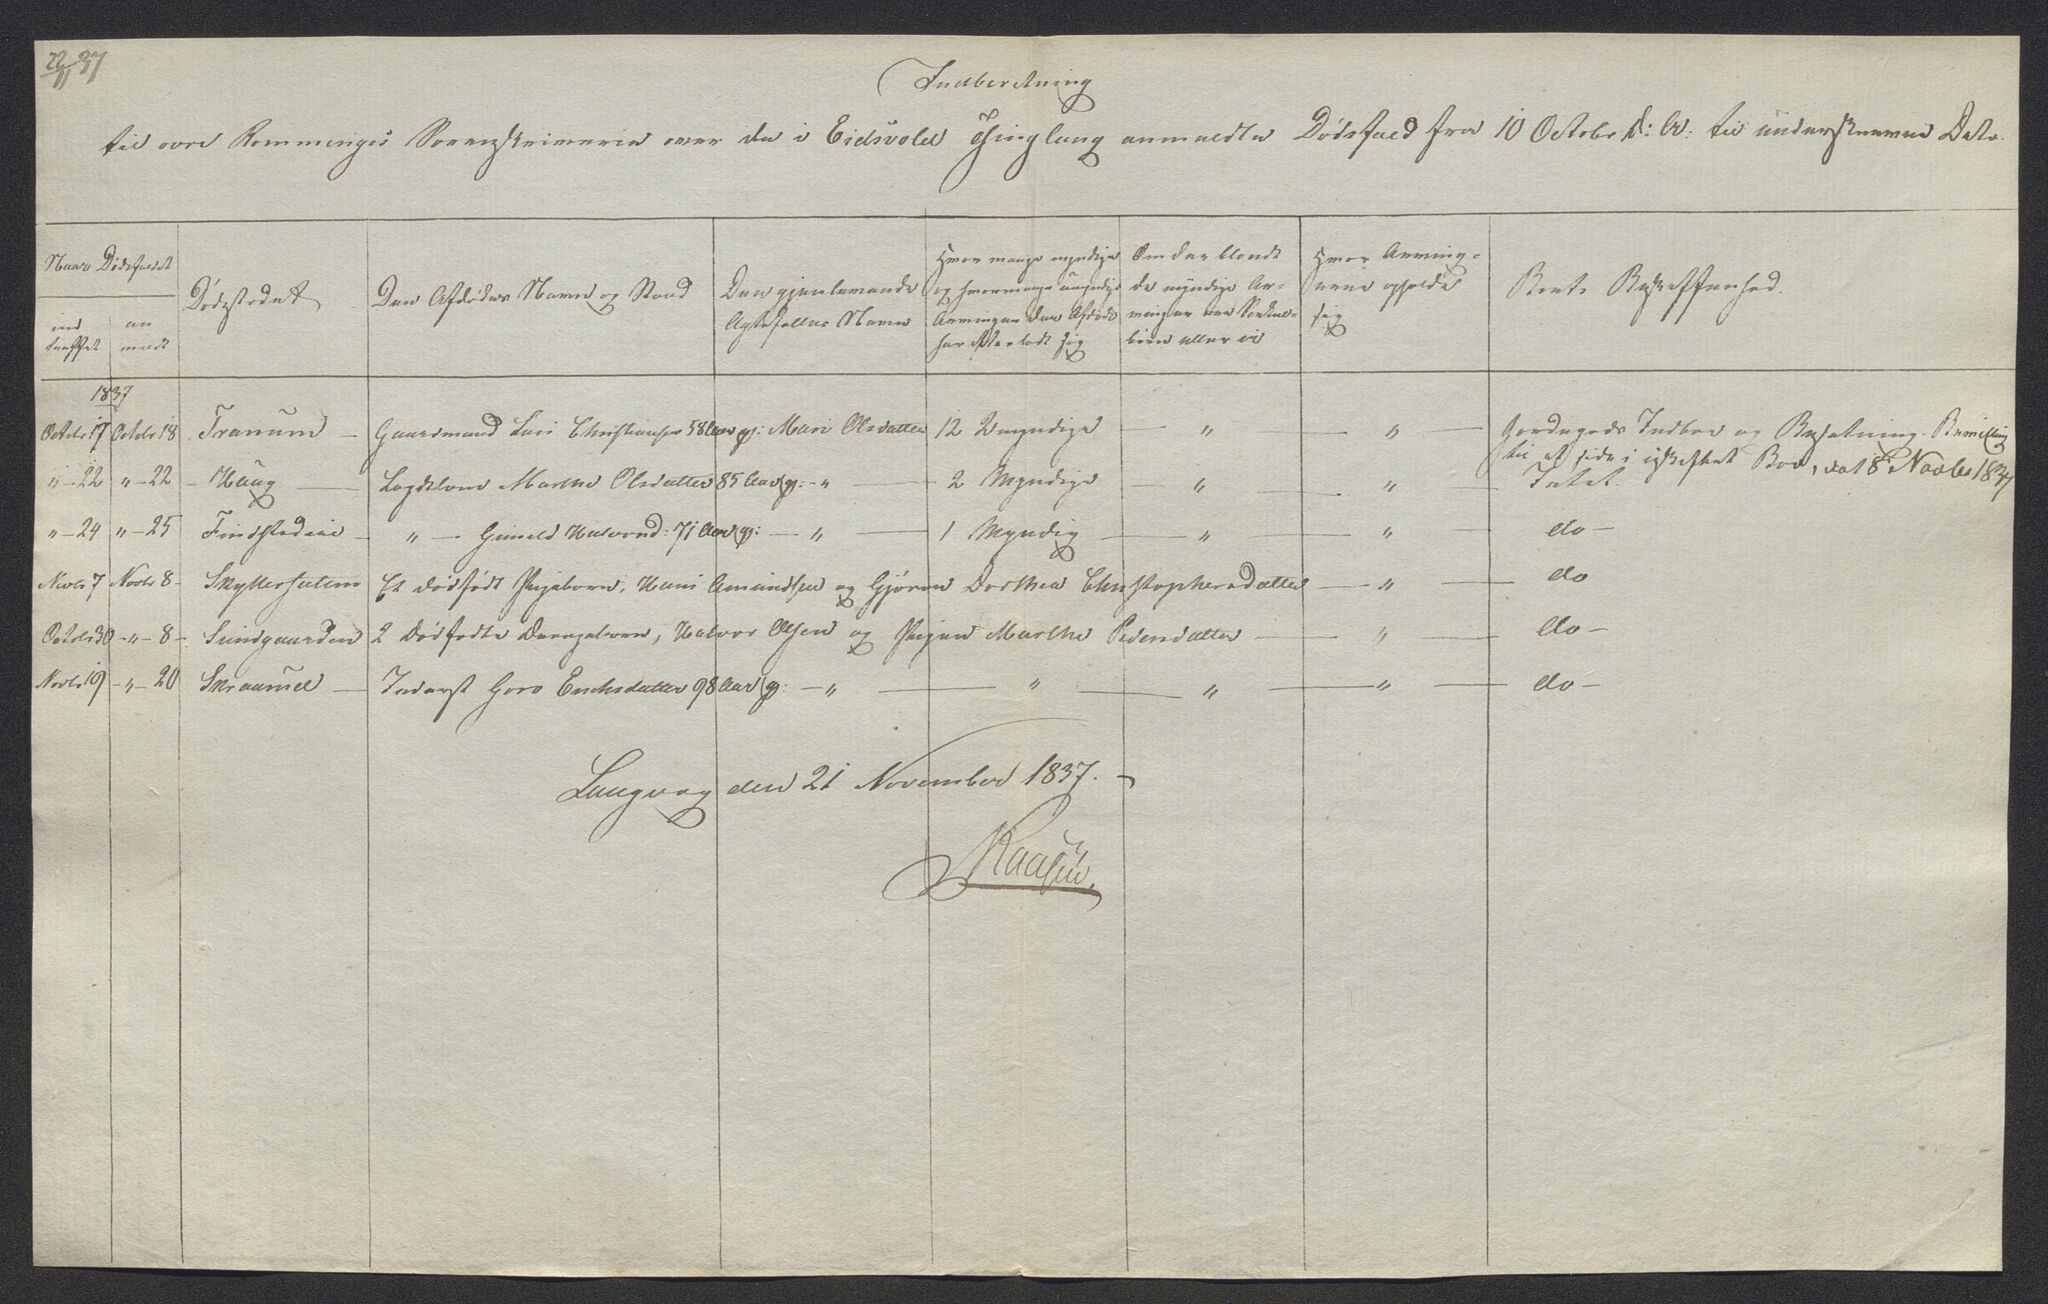 22/11 37
Indberetning
til øvre Rommeriges Sorenskriverie over de i Eidsvold Thinglaug anmeldte Dødsfald fra 10 Octobr d: A: til underskrevne Dato.
Naar Dødsfaldet
ind
truffet
an
meldt
Dødsstedet
Den Afdødes Navn og Stand
Den gjenlevende
Ægtefælles Navn
Hvor mange myndige
og hvormange umyndige
Arvinger den Afdøde
har efterladt sig
Om der blandt
de myndige Ar-
vinger ere
børn eller ei
Hvor Arving-
erne opholde
sig
Boets Beskaffenhed.
1837
Octobr 17 Octobr 18 Tranum — Gaardmand Lars Christiansen 58 Aar g: Mari Olsdatter 12 Umyndige — " — " — Jordegods Indboe og Besætning. Bevilling
til at side i uskiftet Boe, dat 8 Novbr 1837
" — 22 " — 22 — Haug — Lægdslem Marthe Olsdatter 85 Aar g: — " — 2 Myndige — " — " — Intet.
" — 24 " — 25 Findstadeie — " — Gunild Halvorsd: 71 Aar g: — " — 1 Myndig — " — " — do —
Novbr 7 Novbr 8 — Et dødfødt Pigebarn, Hans Amundsen og Gjøren Dorthea Christophersdatter — " — do
Octobr 30 — " — 8 — Sundgaarden 2 dødfødte Drengebørn, Halvor Olsen og Pigen Marthe Pedersdatter — " — do —
Novbr 19 — " — 20 Skraarud — Inderst Goro Erichsdatter 98 Aar g: — " — " — " — " — do —
Laugvag den 21 November 1837. —